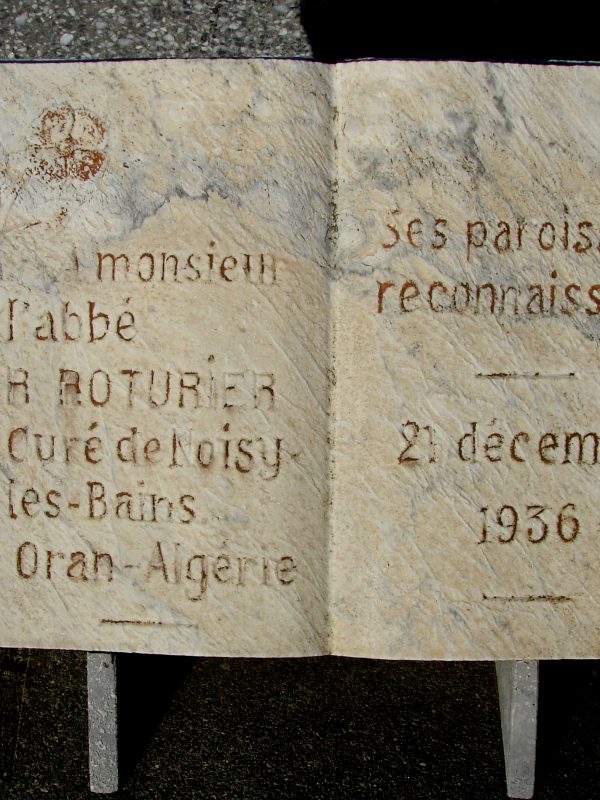 A monsieur
l'abbé
R ROTURIER
Curé de Noisy-
les-Bains
Oran-Algérie
Ses parois
reconnaiss
21 décem
1936